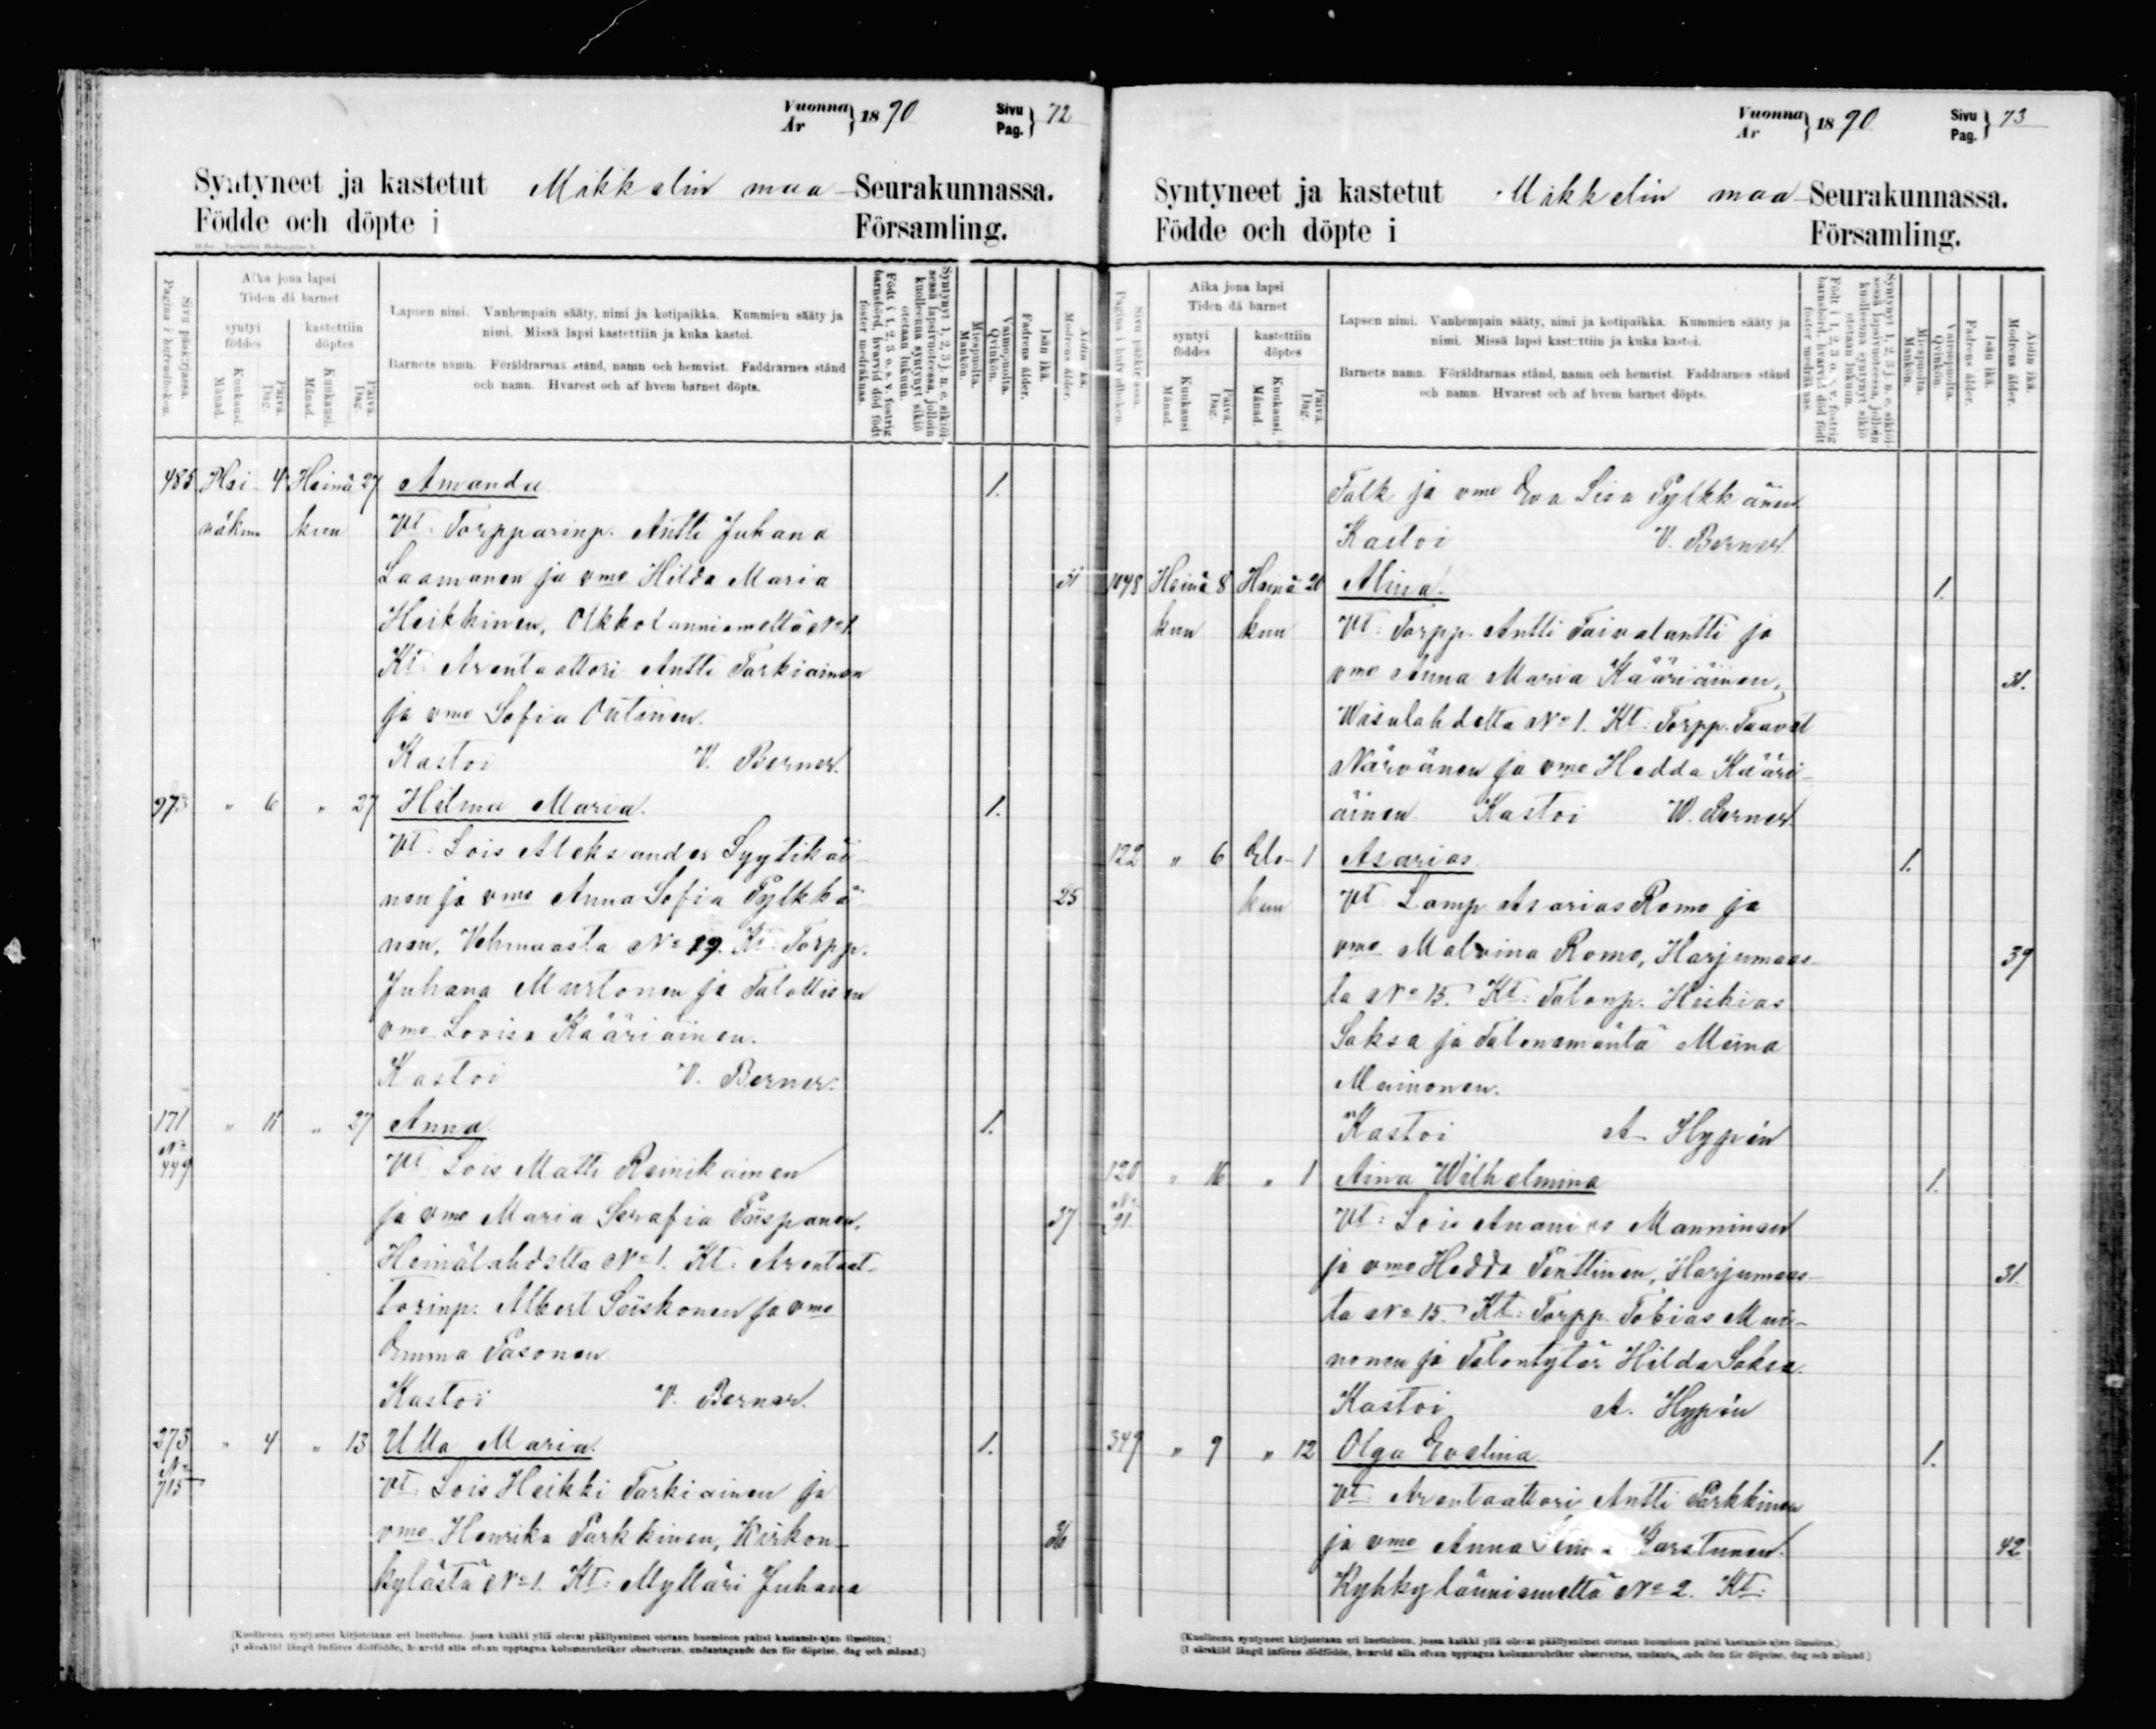 Vuonna
År } 1890 Sivu
Pag. } 72
Syntyneet ja kastetut Mikkelin maa-Seurakunnassa.
Födde och döpte i Församling.
Sivu pääkirjassa.
Pagina i hufvudboken.
Aika jona lapsi
Tiden då barnet
syntyi
föddes
kastettiin
döptes
Kuukausi.
Månad.
Päivä.
Dag.
Kuukausi.
Månad.
Päivä.
Dag.
Lapsen nimi. Vanhempain sääty, nimi ja kotipaikka. Kummien sääty ja
nimi. Missä lapsi kastettiin ja kuka kastoi.
Barnets namn. Föräldrarnas stånd, namn och hemvist. Faddrarnes stånd
och namn. Hvarest och af hvem barnet döpts.
Syntynyt 1, 2, 3 j. n. e. sikiöi-
sessä lapsivuoteessa, jolloin
kuolleenna syntynyt sikiö
otetaan lukuun.
Född i 1, 2, 3 o. s. v. fostrig
barnsbörd, hvarvid död född
foster medräknas.
Miespuolta.
Mankön.
Vaimopuolta.
Qvinkön.
Isän ikä.
Fadrens ålder.
Äidin ikä.
Modrens ålder.
485 Hei- 4 Heinä 27 Amanda 1.
näkuu kuu Vt. Torpparinp. Antti Juhana
Laamanen ja vmo Hilda Maria 31
Heikkinen, Olkkolanniemeltä No 1.
Kt. Arentaattori Antti Tarkiainen
ja vmo Sofia Outinen.
Kastoi V. Berner.
973 " 6 " 27 Hilma Maria. 1.
Vt. Lois Aleksander Lyytikäi-
nen ja vmo Anna Sofia Pylkkä- 25
nen, Vehmaasta No 19. Kt. Torpp.
Juhana Murtonen ja Talollisen
vmo Lovisa Kääriäinen.
Kastoi V. Berner.
171 " 11 " 27 Anna. 1.
No
449 Vt. Lois Matti Reinikainen
ja vmo Maria Serafia Piispanen, 37
Heinälahdelta No 1. Kt. Arentaat-
torinp. Albert Siiskonen ja vmo
Emma Pasonen
Kastoi V. Berner.
273 " 4 " 13 Ulla Maria. 1.
No
715 Vt. Lois Heikki Tarkiainen ja
vmo Henrika Parkkinen, Kirkon- 36
kylästä No 1. Kt. Mylläri Juhana
(Kuolleena syntyneet kirjotetaan eri luetteloon, jossa kaikki yllä olevat päällysnimet otetaan huomioon paitsi kastamis-ajan ilmoitus.)
(I särskild längd införes dödfödde, hvarvid alla ofvan upptagna kolumnrubriker observeras, undantagande den för döpelse, dag och månad.)
Vuonna
År } 1890 Sivu
Pag. } 73
Syntyneet ja kastetut Mikkelin maa-Seurakunnassa.
Födde och döpte i Församling.
Sivu pääkirjassa.
Pagina i hufvudboken.
Aika jona lapsi
Tiden då barnet
syntyi
föddes
kastettiin
döptes
Kuukausi
Månad.
Päivä.
Dag.
Kuukausi.
Månad.
Päivä.
Dag.
Lapsen nimi. Vanhempain sääty, nimi ja kotipaikka. Kummien sääty ja
nimi. Missä lapsi kastettiin ja kuka kastoi.
Barnets namn. Föräldrarnas stånd, namn och hemvist. Faddrarnes stånd
och namn. Hvarest och af hvem barnet döpts.
Syntynyt 1, 2, 3 j. n. e. sikiöi-
sessä lapsivuoteessa, jolloin
kuolleenna syntynyt sikiö
otetaan lukuun.
Född i 1, 2, 3 o. s. v. fostrig
barnsbörd, hvarvid död född
foster medräknas.
Miespuolta.
Mankön.
Vaimopuolta.
Qvinkön.
Isän ikä.
Fadrens ålder.
Äidin ikä.
Modrens ålder.
Falk ja vmo Eva Liisa Pylkkänen
Kastoi V. Berner.
1048 Heinä 8 Heinä 20 Alina. 1.
kuu kuu Vt: Torpp. Antti Taivalantti ja
vmo Anna Maria Kääriäinen, 31.
Wisulahdelta No 1. Kt: Torpp. Taavet
Närvänen ja vmo Hedda Kääri-
äinen Kastoi W. Berner.
122 " 6 Elo- 1 Asarias. 1.
kuu Vt Lamp. Asarias Romo ja
vmo Malvina Romo, Harjumaas- 39
ta No 15. Kt: Talonp. Hiskias
Saksa ja Talonemäntä Miina
Mainonen.
Kastoi A. Hypén
120 " 16 " 1 Aina Wilhelmina 1.
No
91 Vt: Lois Ananias Manninen
ja vmo Hedda Penttinen, Harjumaas- 31.
ta No 15. Kt: Torpp. Tobias Mai-
nonen ja Talontytär Hilda Saksa.
Kastoi A. Hypén
349 " 9 " 12 Olga Evelina. 1.
Vt: Arentaattori Antti Parkkinen
ja vmo Anna Karstunen. 42
Kyhkylänniemeltä No 2. Kt:
(Kuolleena syntyneet kirjotetaan eri luetteloon, jossa kaikki yllä olevat päällysnimet otetaan huomioon paitsi kastamis-ajan ilmoitus.)
(I särskild längd införes dödfödde, hvarvid alla ofvan upptagna kolumnrubriker observeras, undanta ande den för döpelse, dag och månad)